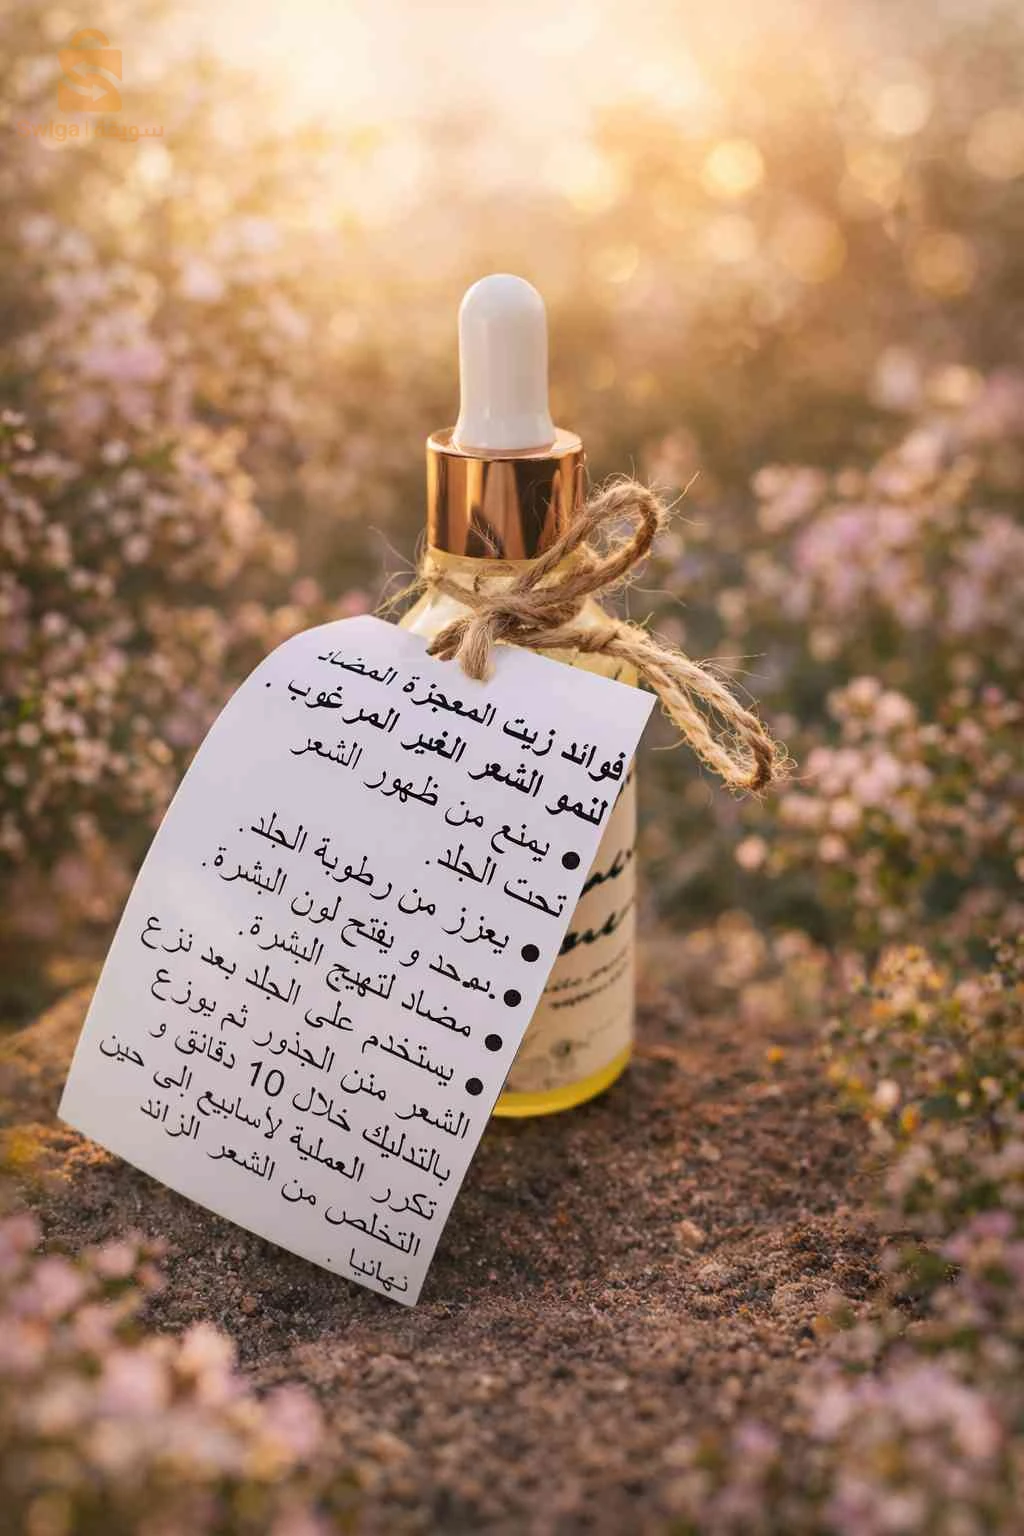 سويقة
فوائد زيت المعجزة المضاد
لنمو الشعر الغير المرغوب .
● يمنع من ظهور الشعر
تحت الجلد.
● يعزز من رطوبة الجلد.
● يوحد و يفتح لون البشرة.
● مضاد لتهيج البشرة.
● يستخدم على الجلد بعد نزع
الشعر منن الجذور ثم يوزع
بالتدليك خلال 10 دقائق و
تكرر العملية لأسابيع إلى حين
التخلص من الشعر الزائد
نهائيا .